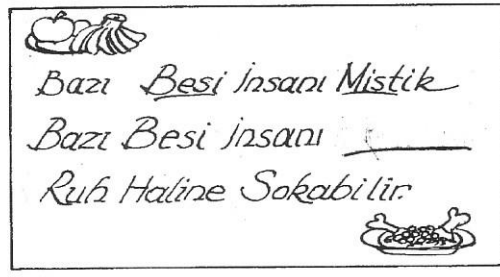 Bazı Besi İnsanı Mistik
Bazı Besi İnsanı
Ruh Haline Sokabilir.